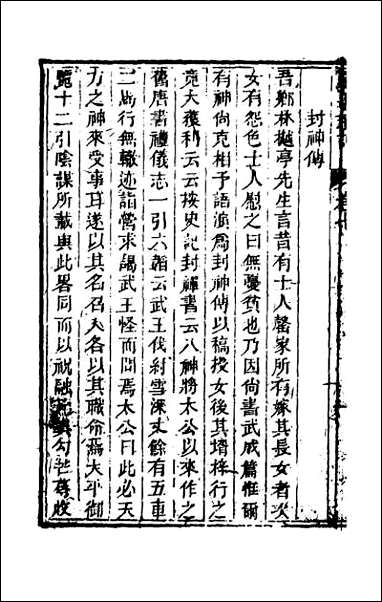 封神傳
吾鄉林樾亭先生言昔有士人罄家所有嫁其長女者次
女有怨色士人慰之曰無憂貧也乃因尚書武成篇惟爾
有神尚克相予語演為封神傳以稿授女後其壻梓行之
竟大獲利云云按史記封禪書云八神將太公以來作之
舊唐書禮儀志一引六韜云武王伐紂雪深丈餘有五車
二馬行無轍迹詣營求謁武王怪而問焉太公曰此必天
方之神來受事耳遂以其名召入各以其職命焉太平御
覽十二引陰謀所載與此畧同而以祝融